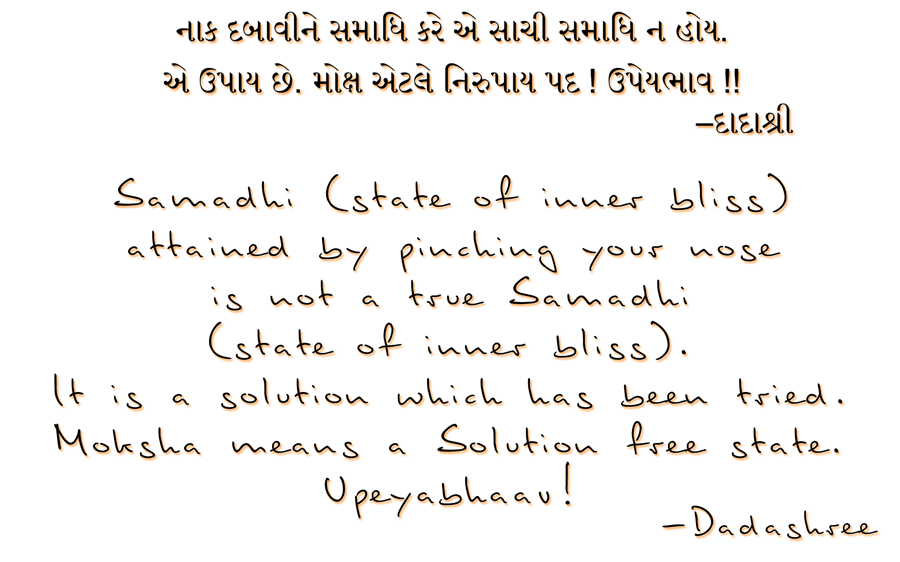 નાક દબાવીને સમાધિ કરે એ સાચી સમાધિ ન હોય.
એ ઉપાય છે. મોક્ષ એટલે નિરુપાય પદ ! ઉપેયભાવ !!
–દાદાશ્રી
Samadhi (state of inner bliss)
attained by pinching your nose
is not a true Samadhi
(state of inner bliss).
It is a solution which has been tried.
Moksha means a Solution free state.
Upeyabhaav!
–Dadashree